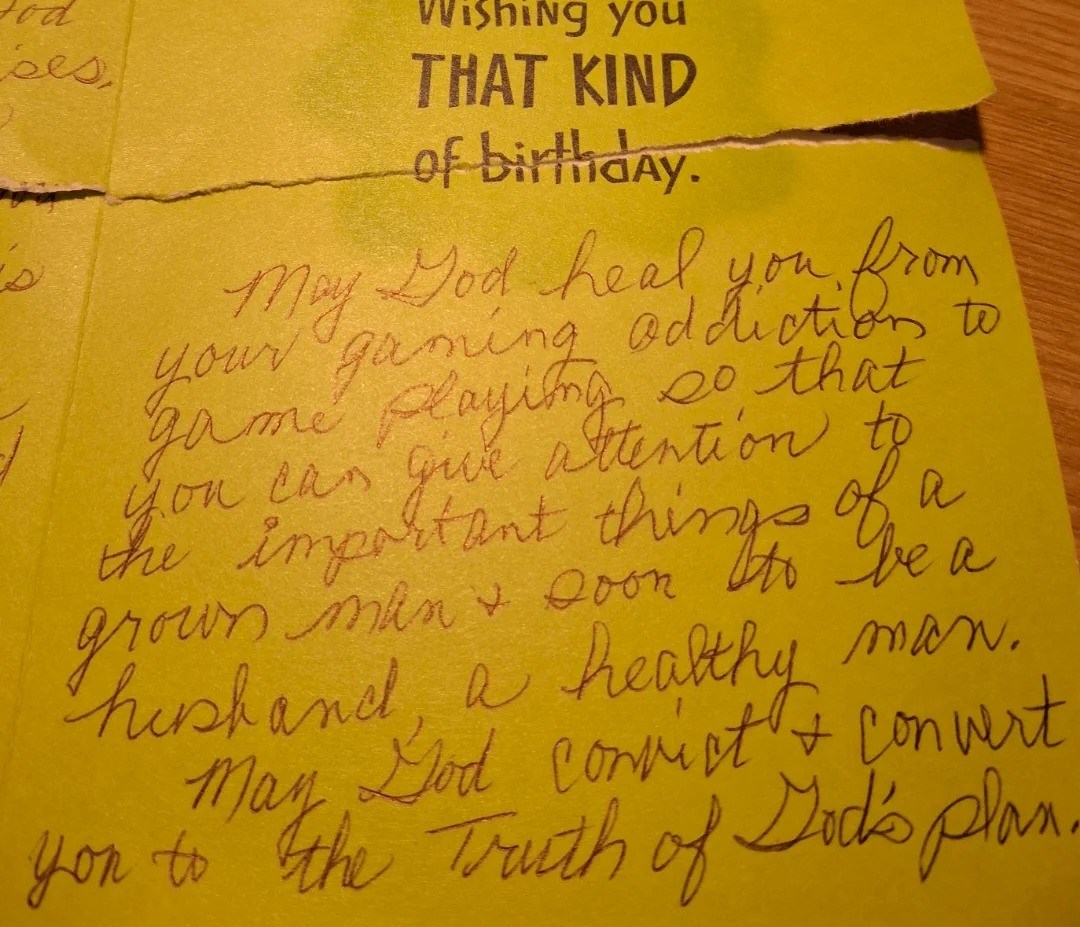 God
ises,
Wishing you
THAT KIND
of birthday.
is
May God heal you from
your gaming addiction to
game playing so that
you can give attention to
the important things of a
grown man & soon to be a
husband, a healthy man.
May God convict & convert
you to the Truth of God's plan.